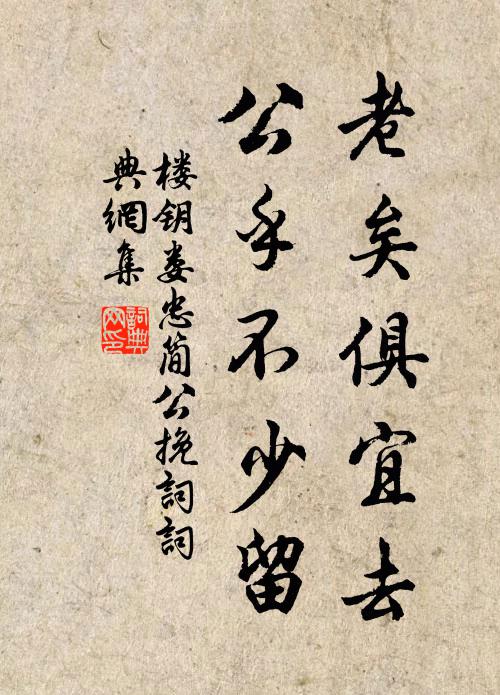 老矣俱宜去
公乎不少留
楼钥娄忠简公挽詞詞
典網集
詞典
网印